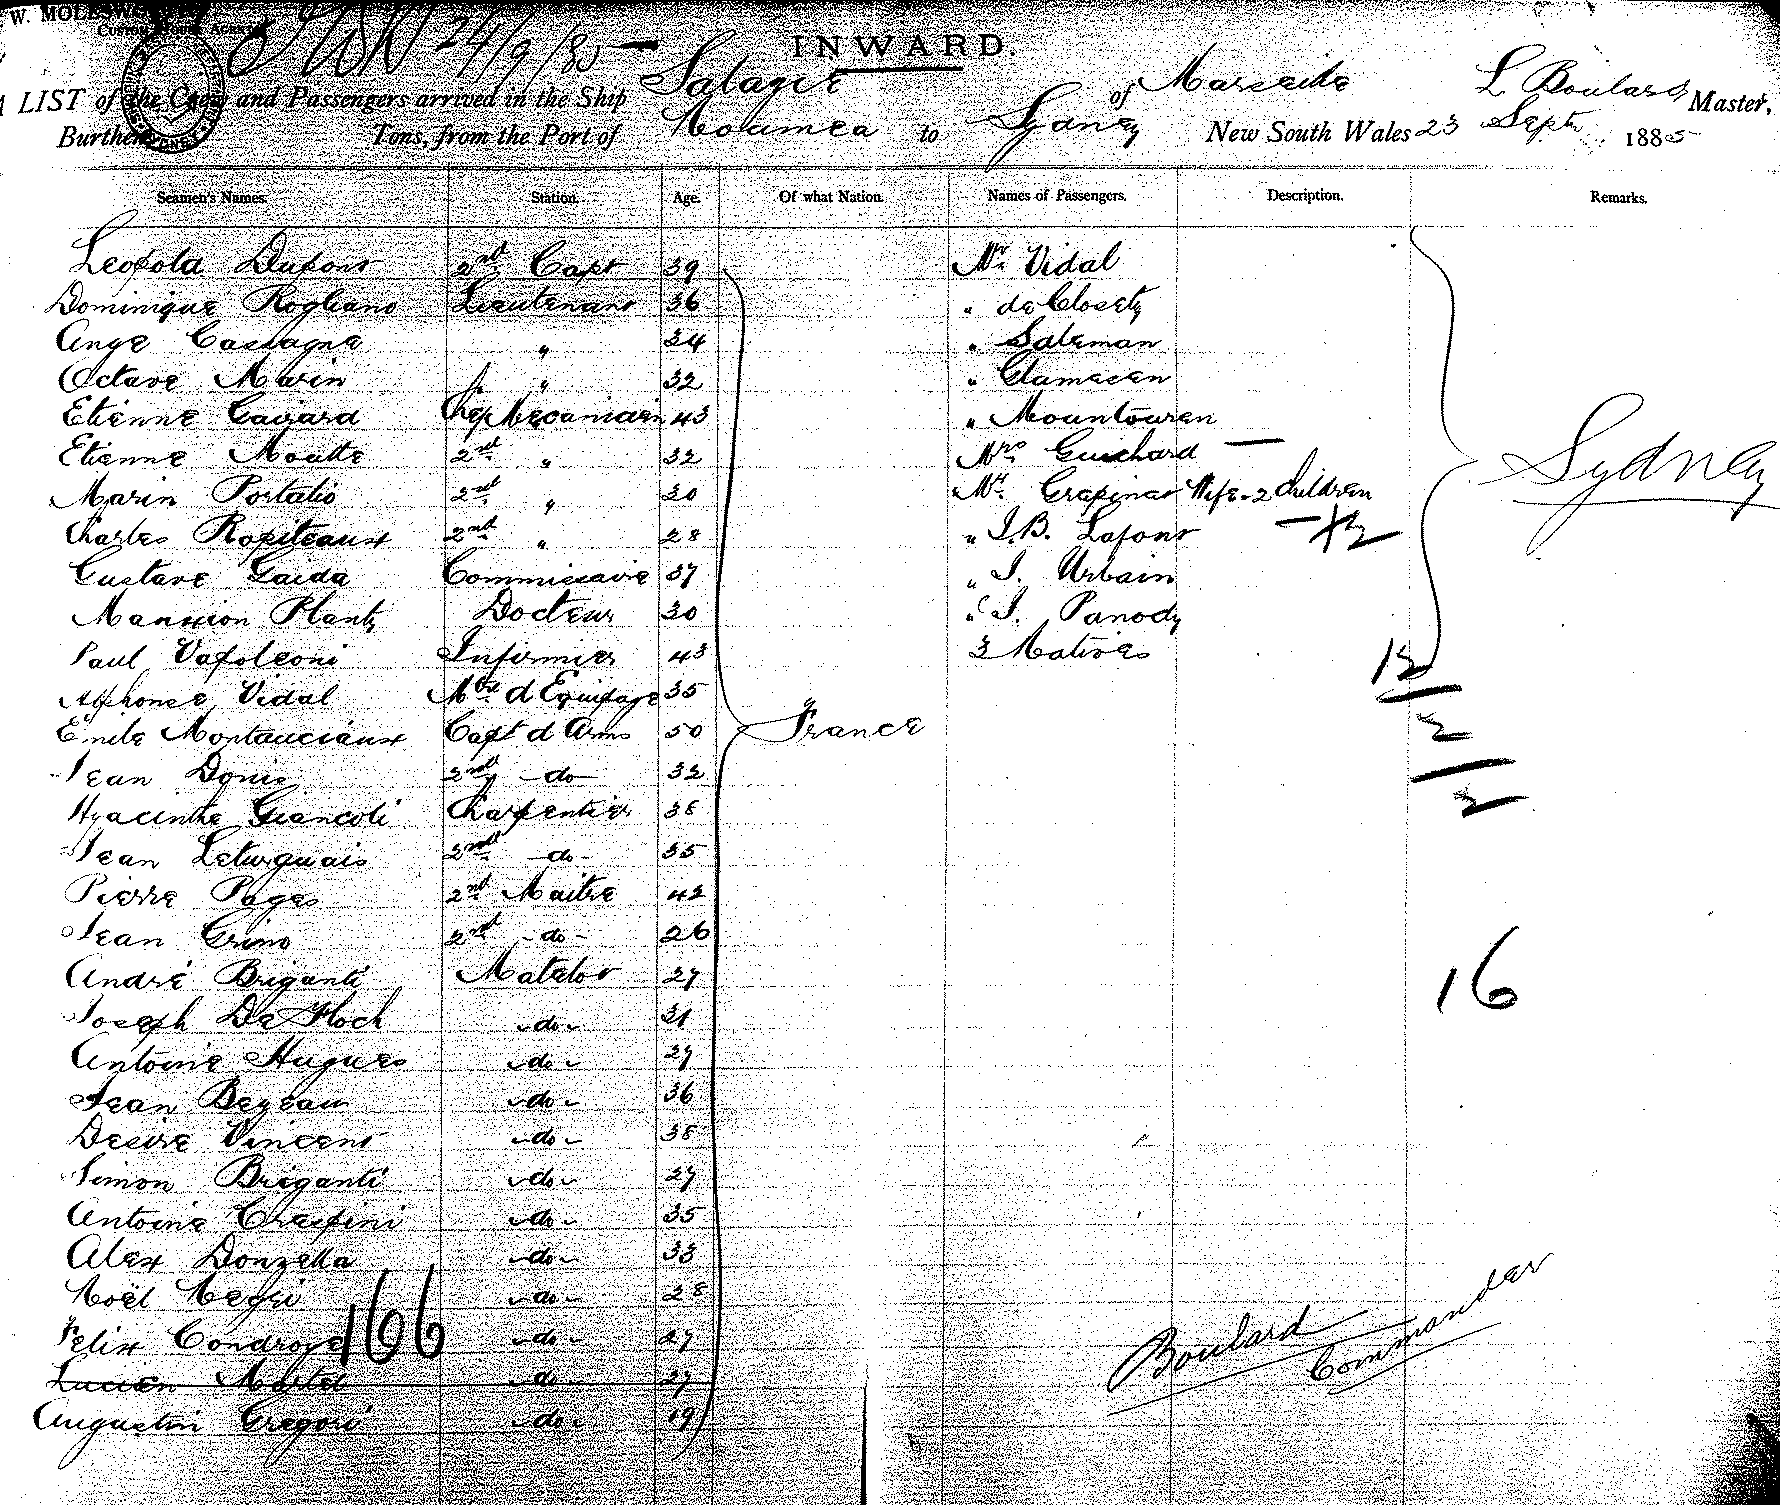 W. MOLESW
CUSTOM HOUSE AGENT
24/9/85
INWARD.
A LIST of the Crew and Passengers arrived in the Ship Salazie of Marseille L Boulard Master,
Burthen Tons, from the Port of Noumea to Sydney New South Wales 23 Sept. 1885
Seamen's Names. Station. Age. Of what Nation. Names of Passengers. Description. Remarks.
Leopold Dupont 2nd Capt 39 Mr. Vidal
Dominique Rogliano Lieutenant 36 " de Closets
Ange Cassagne " 34 " Sateman
Octave Marin " 32 "
Etienne Gavard Chef Mecanicien 43 " Mountouren
Etienne Moutte 2nd " 32 Mrs. Guichard —
Marin Portalis 2nd " 30 Mr. Grapinet Wife - 2 children
Charles Ropiteaux 2nd " 28 " J.B. Lafont
Gustave Gaida Commissaire 37 " J. Urbain
Plantz Docteur 30 " J. Panody
Paul Napoleoni Infirmier 43 3 Natives
Alphonse Vidal Mtre d'Equipage 35
Emile Capt d Arms 50 France Sydney
Jean Donis 2nd - do - 32
Hyacinthe Giancoli Charpentier 38
Jean Leturquais 2nd - do - 35
Pierre Pages 2nd Maitre 42
Jean Grino 2nd - do - 26
André Briganti Matelot 27 16
Joseph De Floch - do - 31
Antoine Hugues - do - 27
Jean Begeau - do - 36
Desire Vincent - do - 38
Simon Briganti - do - 27
Antoine Crespini - do - 35
Alex Donzella - do - 33
Noël Negri - do - 28
Felix Condroyer - do - 27
166
Lucien Martel - do - 27
Augustin Gregori - do - 19
Boulard
Commander